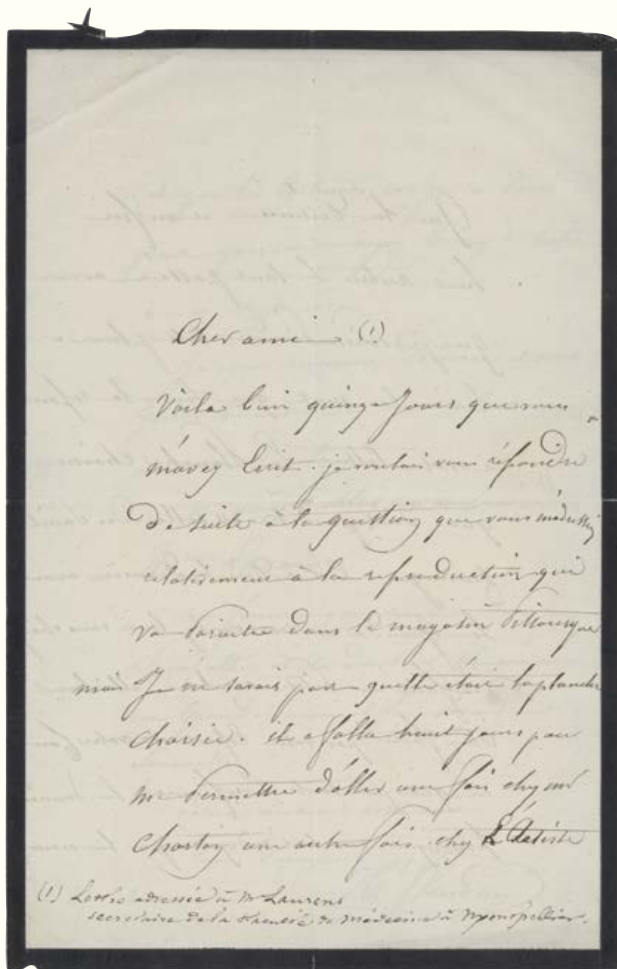 Cher ami (1)
Voila bien quinze Jours que vous
m'avez Ecrit. je voulais vous répondre
De suite à la question que vous m'adressiez
relativement à la reproduction qui
va Paraitre dans le magasin Pittoresque
mais Je ne savais pas quelle était la planche
choisie. il a fallu huit jours pour
me Permettre d'aller une fois chez mr
Charton une autre fois chez L'Artiste
(1) Lettre adressée à Mr Laurens
secrétaire de la Faculté de Médecine à Montpellier.